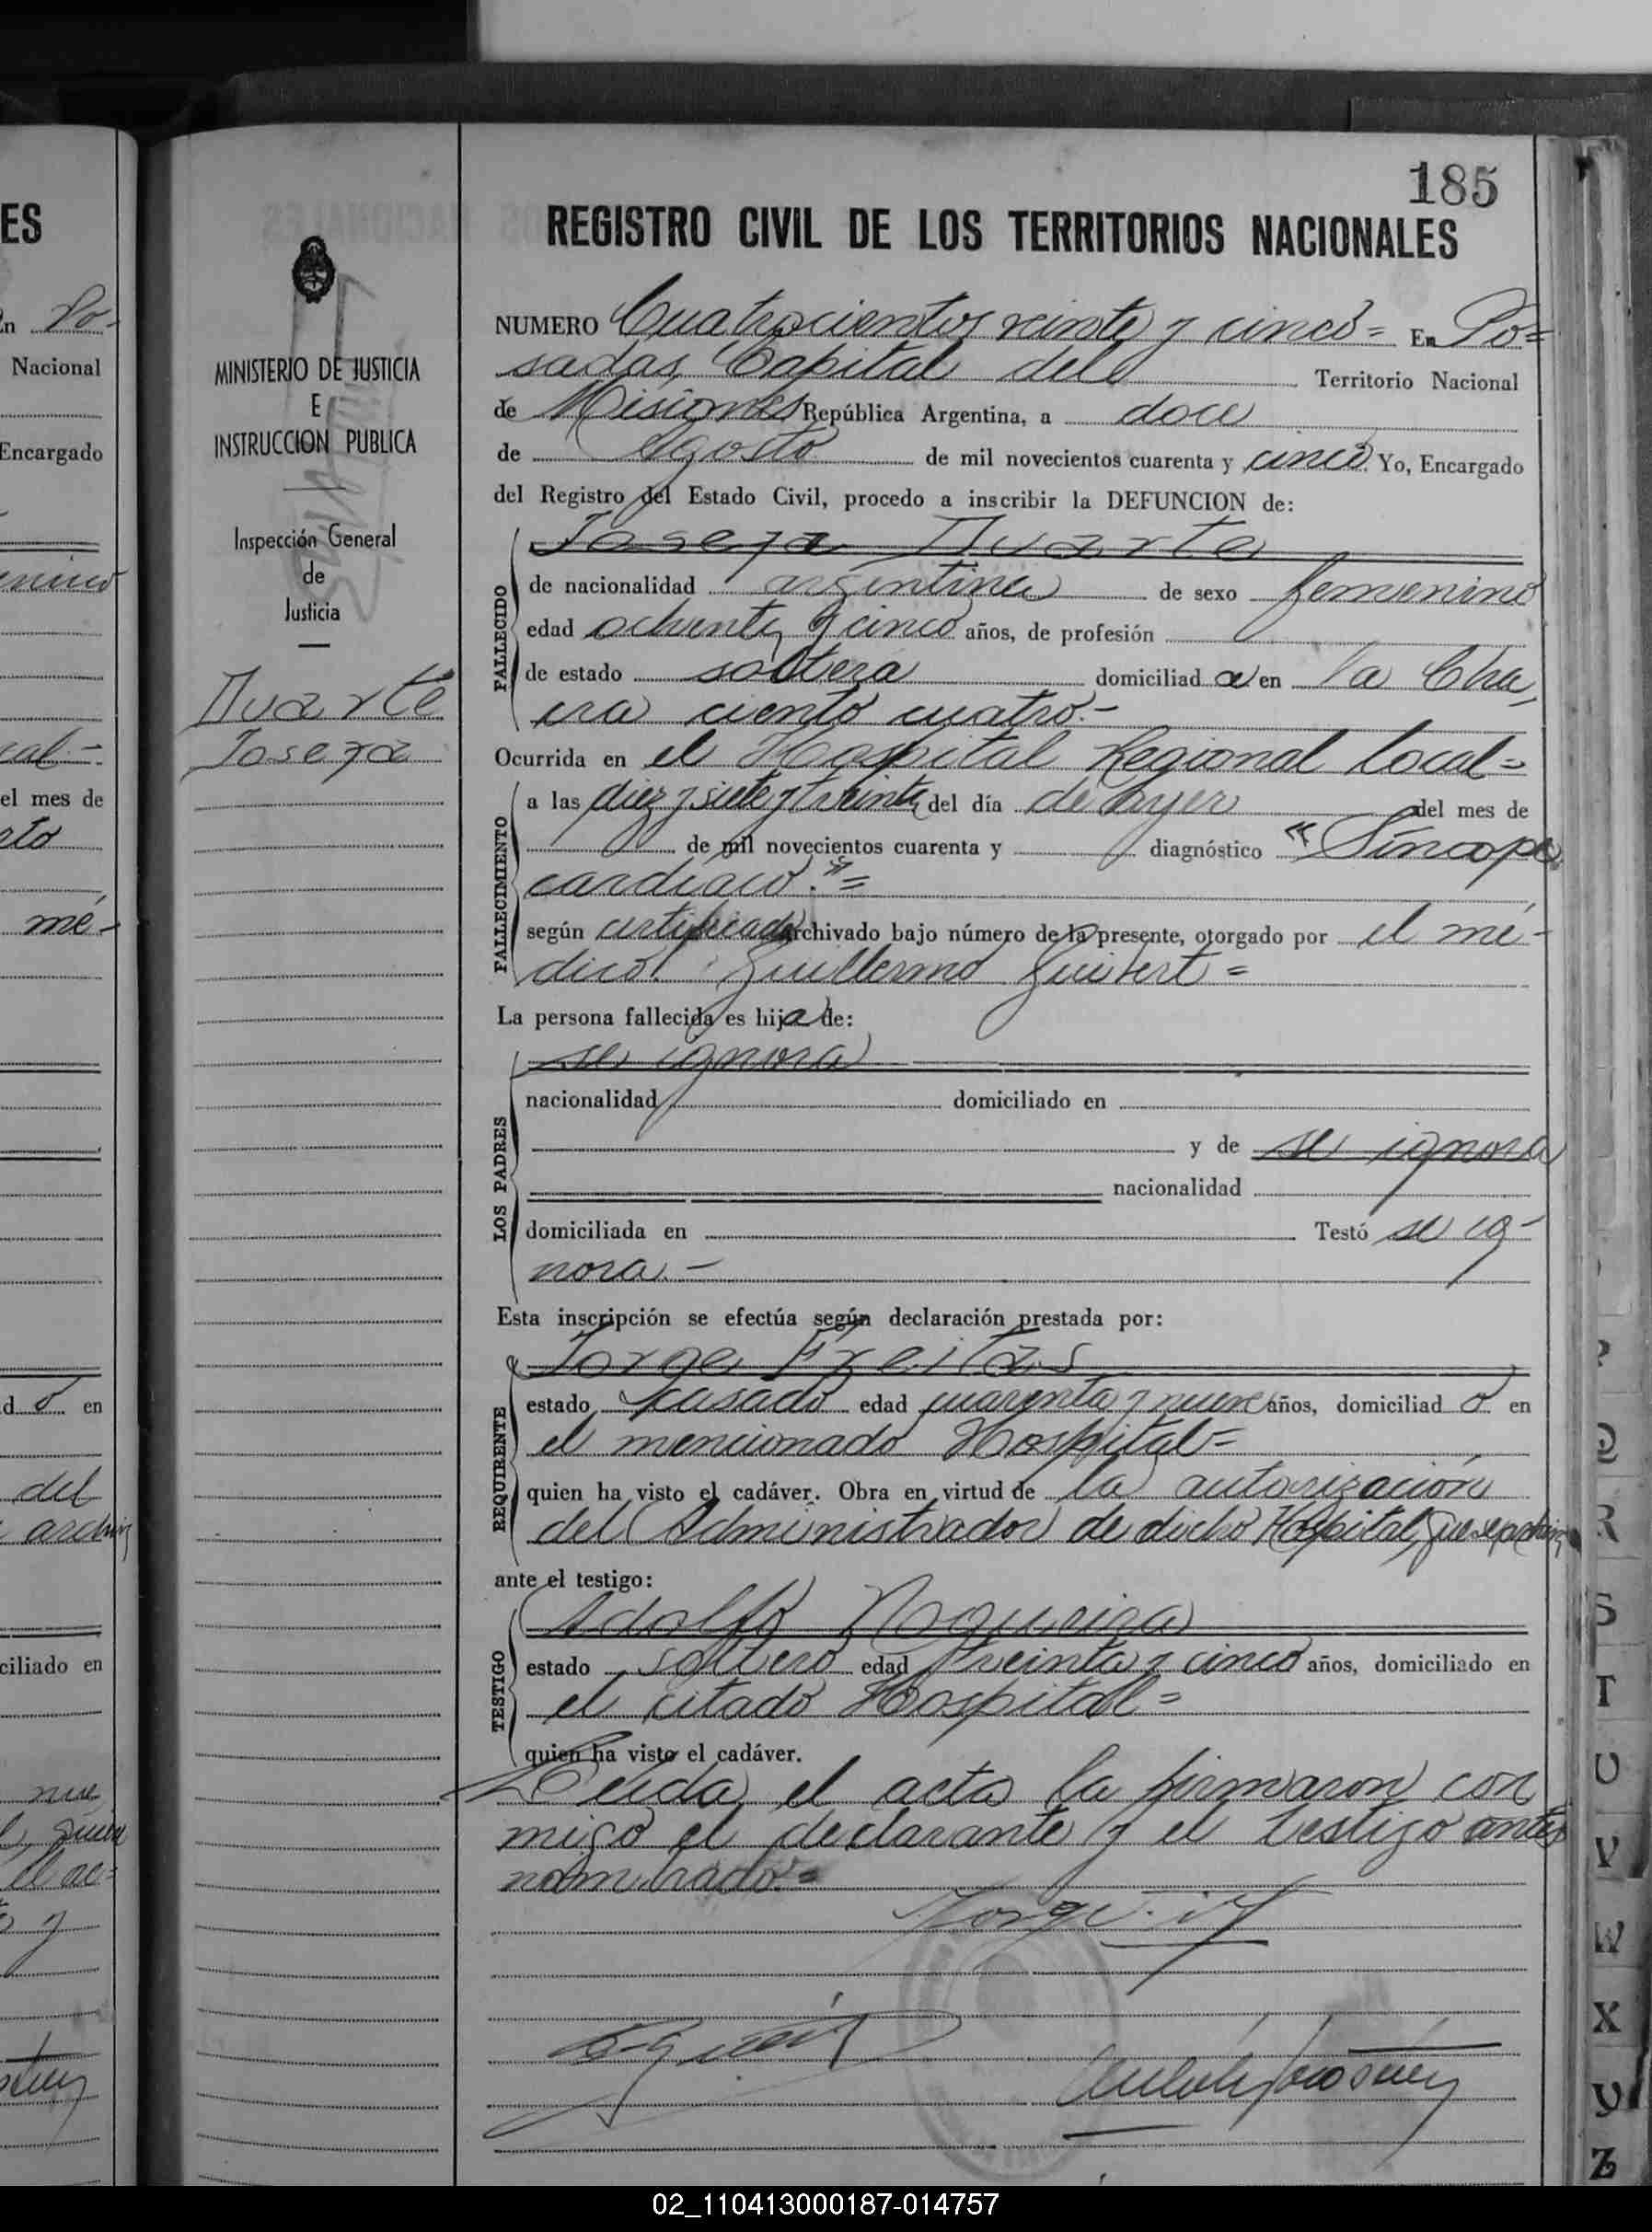 185
REGISTRO CIVIL DE LOS TERRITORIOS NACIONALES
MINISTERIO DE JUSTICIA
E
INSTRUCCION PUBLICA
Inspección General
de
Justicia
Duarte
Josefa
NUMERO Cuatrocientos veinte y cinco= En Po=
sadas, Capital del Territorio Nacional
de Misiones República Argentina, a doce
de Agosto de mil novecientos cuarenta y cinco. Yo, Encargado
del Registro del Estado Civil, procedo a inscribir la DEFUNCION de:
Josefa Duarte
FALLECIDO
de nacionalidad argentina de sexo femenino
edad ochenta y cinco años, de profesión
de estado soltera domiciliad a en la Cha
cra ciento cuatro.-
Ocurrida en el Hospital Regional local=
FALLECIMIENTO
a las diez y siete y treinta del día de ayer del mes de
de mil novecientos cuarenta y diagnóstico "Síncope
cardiaco."=
según certificado archivado bajo número de la presente, otorgado por el mé-
dico Guillermo
La persona fallecida es hija de:
se ignora
LOS PADRES
nacionalidad domiciliado en
y de se ignora
nacionalidad
domiciliada en Testó se ig-
nora.-
Esta inscripción se efectúa según declaración prestada por:
Jorge Freitas
REQUIRENTE
estado casado edad cuarenta y nueve años, domiciliad o en
el mencionado Hospital=
quien ha visto el cadáver. Obra en virtud de la autorización
del Administrador de dicho Hospital, que se archiva
ante el testigo:
Adolfo Nogueira
TESTIGO
estado soltero edad treinta y cinco años, domiciliado en
el citado Hospital=
quien ha visto el cadáver.
Leida el acta la firmaron con
migo el declarante y el testigo antes
nombrado.=
ES
Nacional
Encargado
el mes de
mé-
d o en
del
ciliado en
P
Q
R
S
T
U
V
W
X
Y
Z
02_110413000187-014757